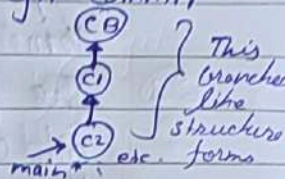 CB
C1
C2
main*
etc.
This
branched
like
structure
forms